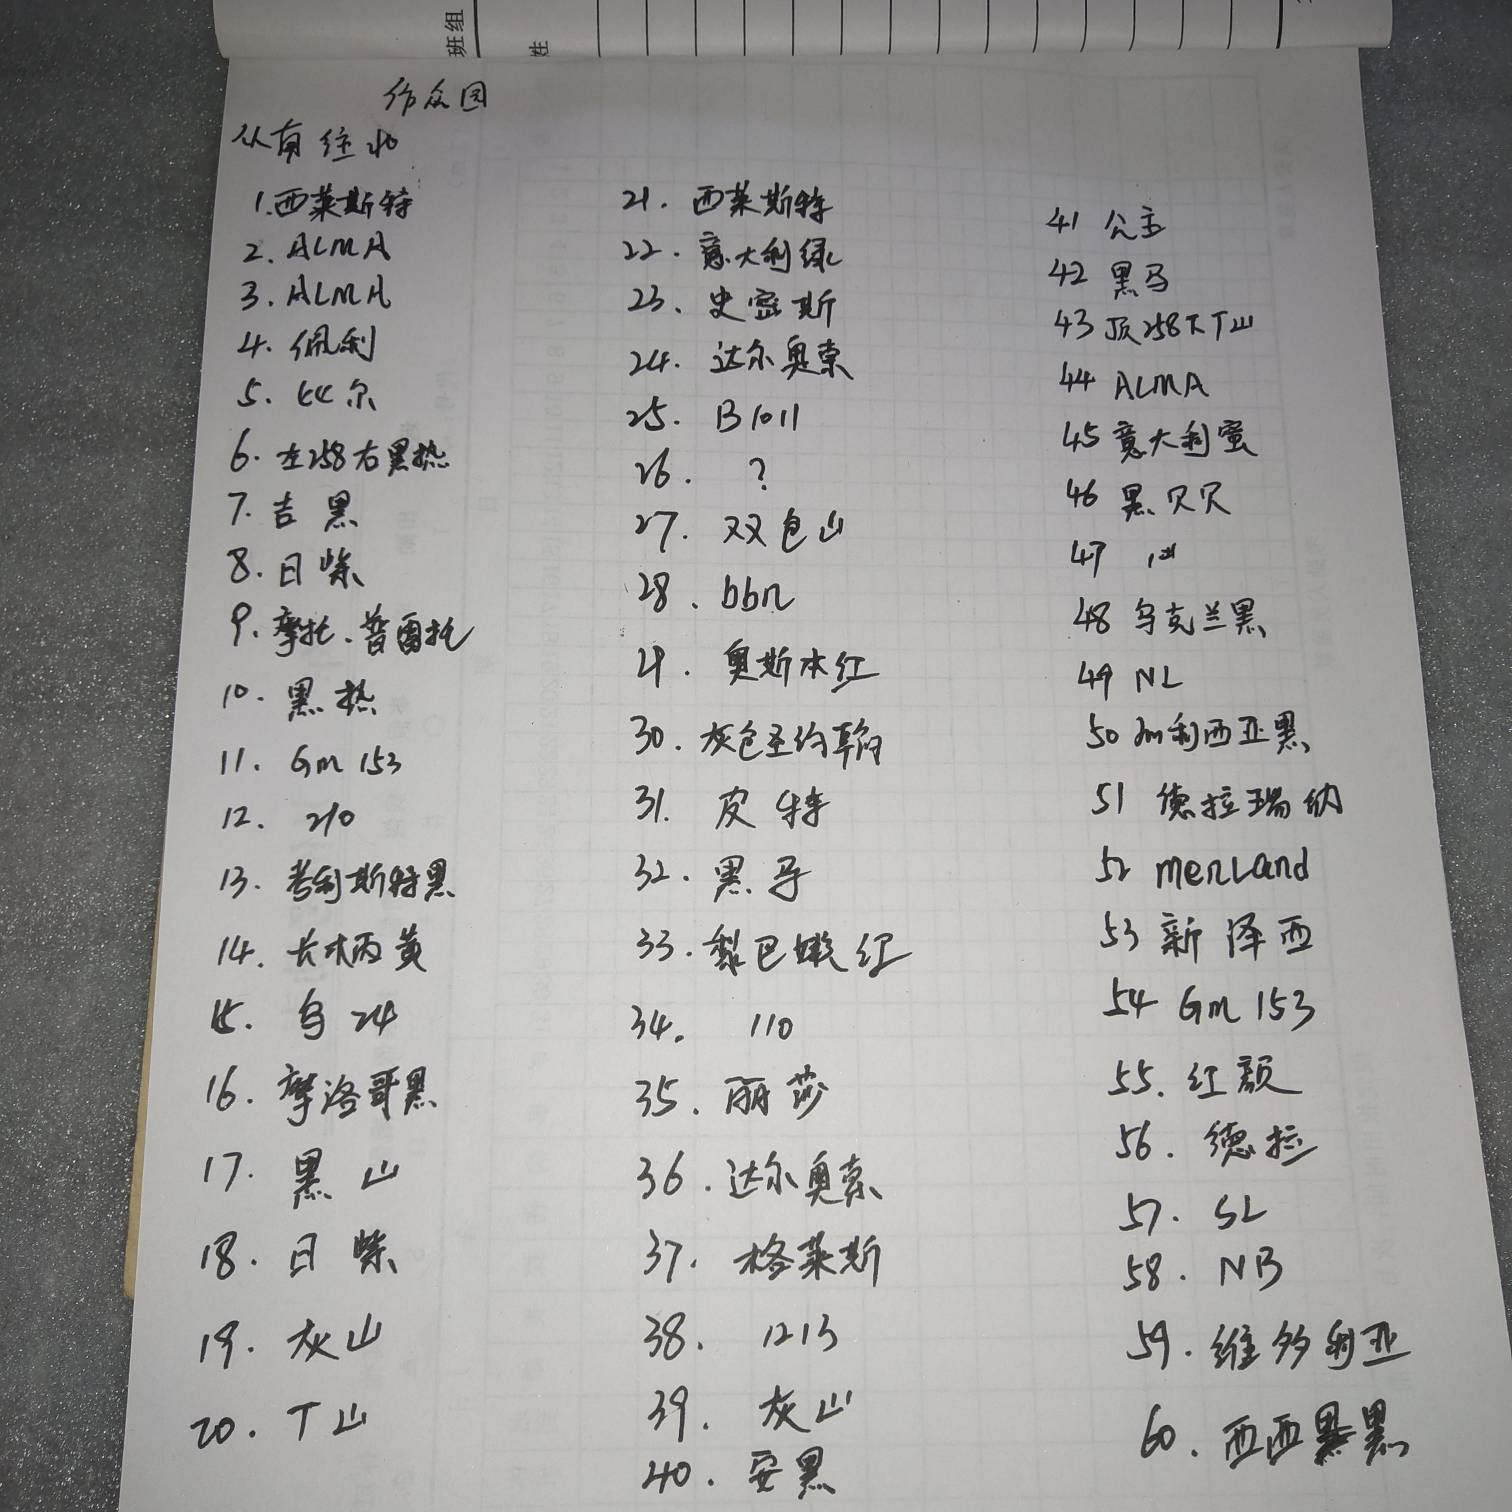 班组
姓
众园
从南往北
1.西莱斯特
2.ALMA
3.ALMA
4.佩利
5.比尔
6.左258右黑热
7.吉黑
8.日紫
9.摩托.普雷托
10.黑热
11.Gm153
12.210
13.考利斯特黑
14.长木丙黄
15.乌24
16.摩洛哥黑
17.黑山
18.日紫
19.灰山
20.T山
21.西莱斯特
22.意大利绿
23.史密斯
24.达尔奥索
25.B1011
26.?
27.双色山
28.bbn
29.奥斯本红
30.灰色圣约翰
31.皮特
32.黑马
33.黎巴嫩红
34.110
35.丽莎
36.达尔奥索
37.格莱斯
38.1213
39.灰山
40.安黑
41 公主
42 黑马
43 顶258下T山
44 ALMA
45 意大利蜜
46 黑贝贝
47
48 乌克兰黑
49 NL
50 加利西亚黑
51 德拉瑞纳
52 menland
53 新泽西
54 Gm153
55.红颜
56.德拉
57.SL
58.NB
59.维多利亚
60.西西黑